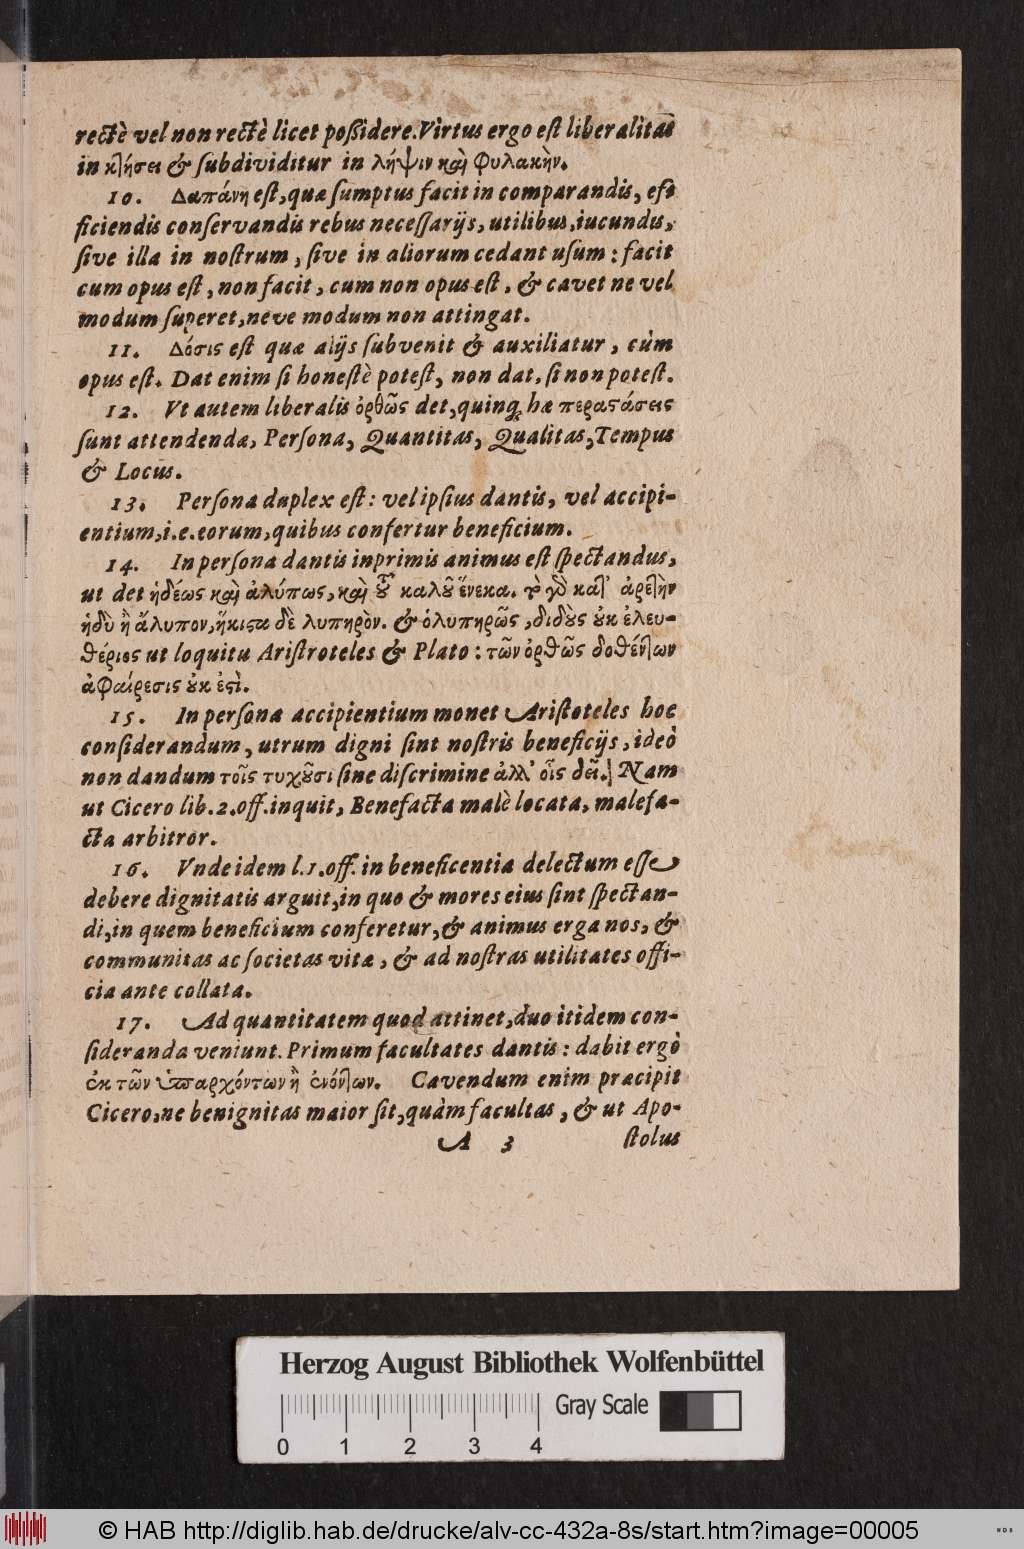 rectè vel non rectè licet poßidere. Virtus ergo est liberalitas
in κλήσει & subdividitur in λήψιν καὶ φυλακὴν.
10. Δαπάνη est, quæ sumptus facit in comparandis, ef-
ficiendis conservandis rebus necessarijs, utilibus, iucundis,
sive illa in nostrum, sive in aliorum cedant usum: facit
cum opus est, non facit, cum non opus est, & cavet ne vel
modum superet, neve modum non attingat.
11. Δόσις est quæ alijs subvenit & auxiliatur, cùm
opus est. Dat enim si honestè potest, non dat, si non potest.
12. Vt autem liberalis ὀρθῶς det, quinq; hæ περιστάσεις
sunt attendendæ, Persona, Quantitas, Qualitas, Tempus
& Locus.
13. Persona duplex est: vel ipsius dantis, vel accipi-
entium, i.e. eorum, quibus confertur beneficium.
14. In persona dantis inprimis animus est spectandus,
ut det ἡδέως καὶ ἀλύπως, καὶ οὗ καλοῦ ἕνεκα. τὸ γὸ κατ' ἀρετὴν
ἡδὺ ἢ ἄλυπον, ἥκιστα δὲ λυπηρὸν. & ὁ λυπηρῶς, διδοὺς οὐκ ἐλευ-
θέριος ut loquitu Aristroteles & Plato: τῶν ὀρθῶς δοθέντων
ἀφαίρεσις οὐκ ἐστὶ.
15. In persona accipientium monet Aristoteles hoc
considerandum, utrum digni sint nostris beneficijs, ideò
non dandum τοῖς τυχοῦσι sine discrimine ἀλλ' οἷς δεῖ. Nam
ut Cicero lib. 2. off. inquit, Benefacta malè locata, malefa-
cta arbitror.
16. Vnde idem l. 1. off. in beneficentia delectum esse
debere dignitatis arguit, in quo & mores eius sint spectan-
di, in quem beneficium conferetur, & animus erga nos, &
communitas ac societas vitæ, & ad nostras utilitates offi-
cia ante collata.
17. Ad quantitatem quod attinet, duo itidem con-
sideranda veniunt. Primum facultates dantis: dabit ergò
ἐκ τῶν ὑπαρχόντων ἢ ἐνόντων. Cavendum enim præcipit
Cicero, ne benignitas maior sit, quàm facultas, & ut Apo-
A 3 stolus
Herzog August Bibliothek Wolfenbüttel
Gray Scale
0 1 2 3 4
© HAB http://diglib.hab.de/drucke/alv-cc-432a-8s/start.htm?image=00005